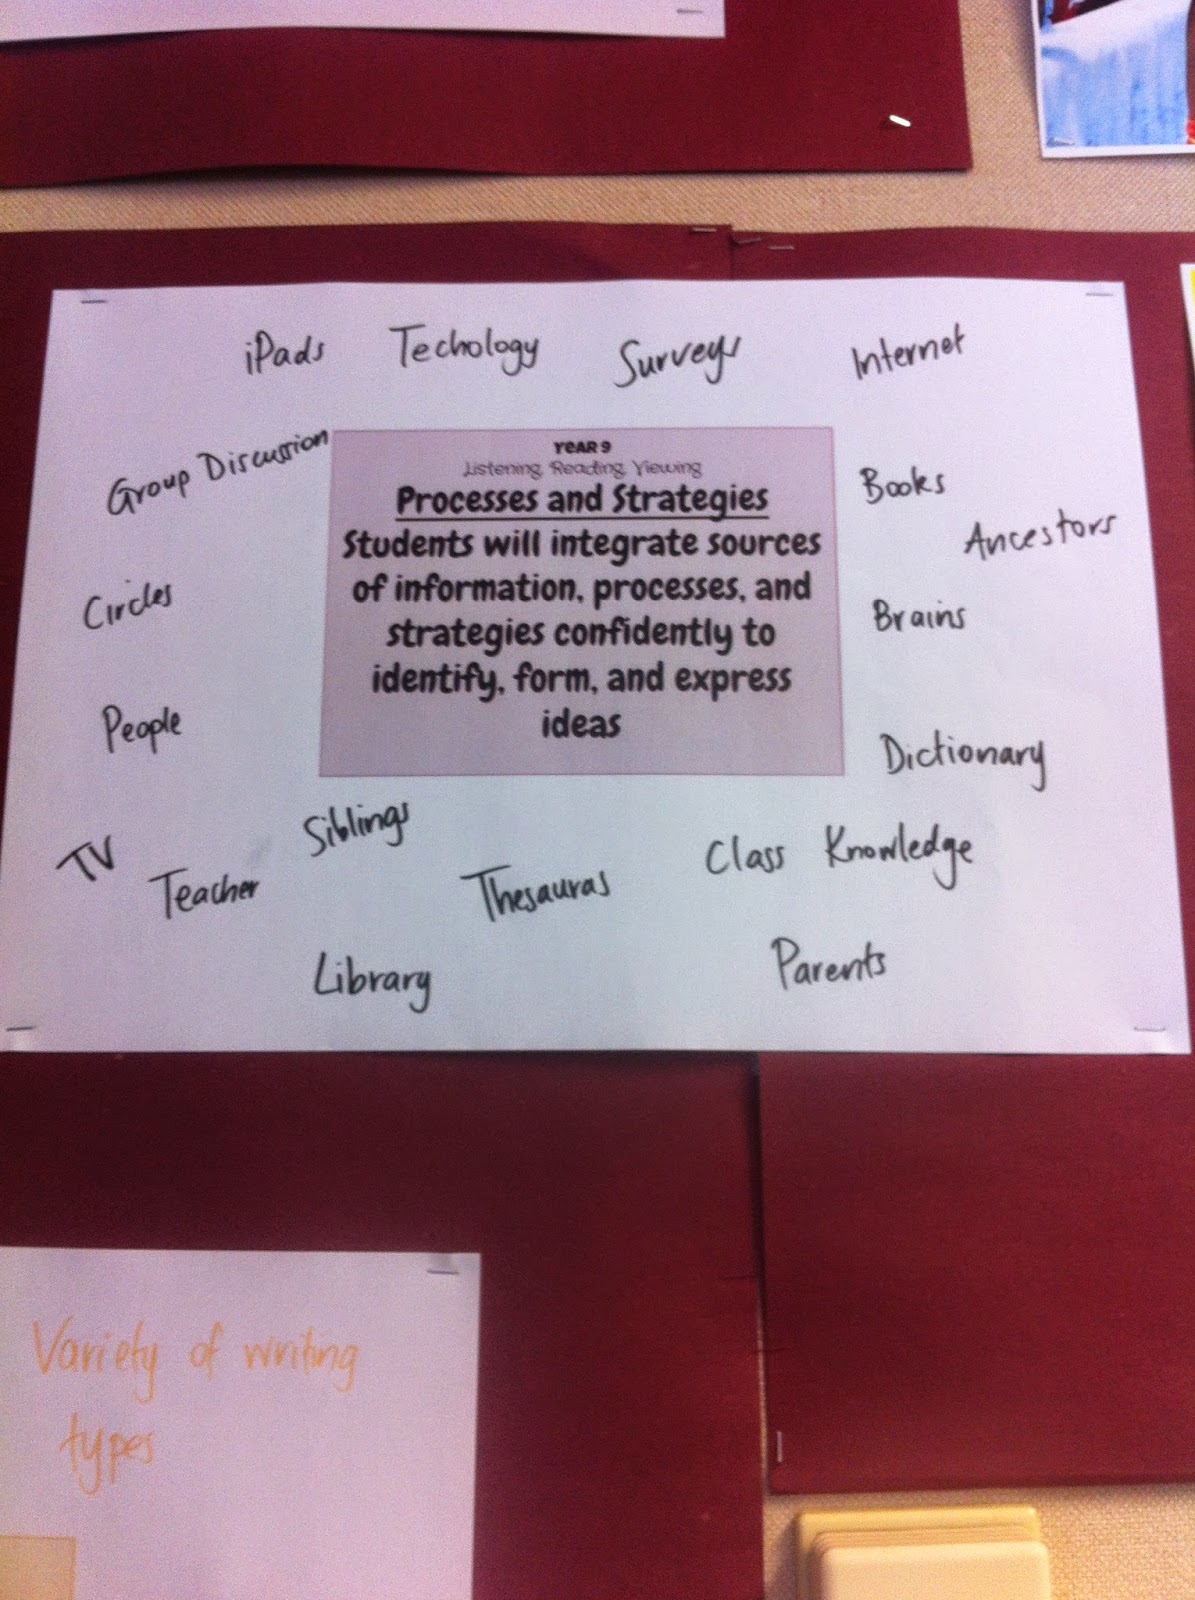 iPads Techology Surveys Internet
Group Discussion
YEAR 9
Listening, Reading, Viewing
Processes and Strategies
Students will integrate sources
of information, processes, and
strategies confidently to
identify, form, and express
ideas
Books
Ancestors
Circles
Brains
People
Dictionary
Siblings
TV
Teacher
Thesauras
Class Knowledge
Library
Parents
Variety of writing
types